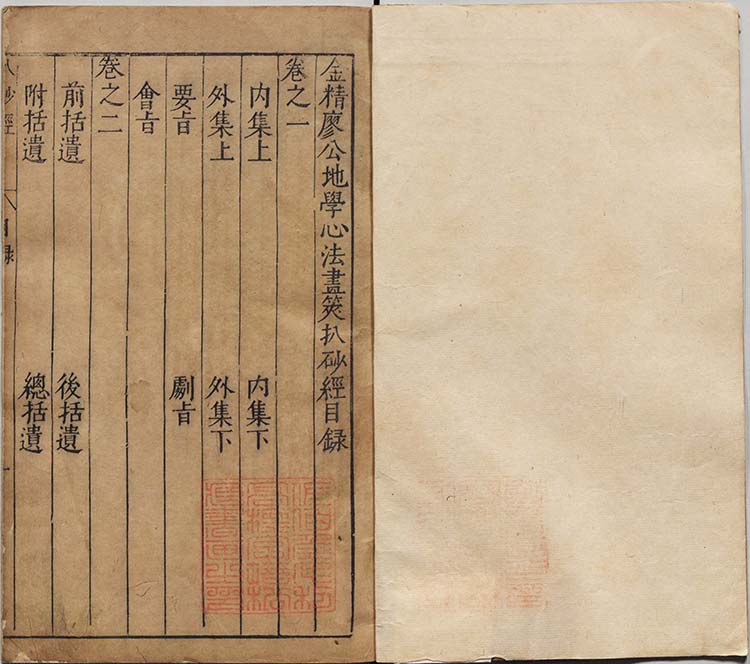 金精廖公地學心法畫筴扒砂經目録
卷之一
內集上 內集下
外集上 外集下
要旨 劇旨
會旨
卷之二
前括遺 後括遺
附括遺 總括遺
八砂經 目録 一